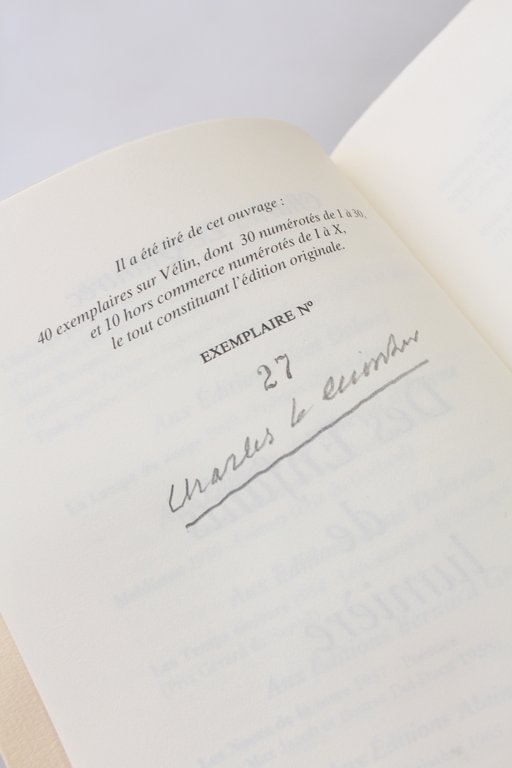 Il a été tiré de cet ouvrage :
40 exemplaires sur Vélin, dont 30 numérotés de I à 30,
et 10 hors commerce numérotés de I à X,
le tout constituant l'édition originale.
EXEMPLAIRE N°
27
Charles le Quintrec